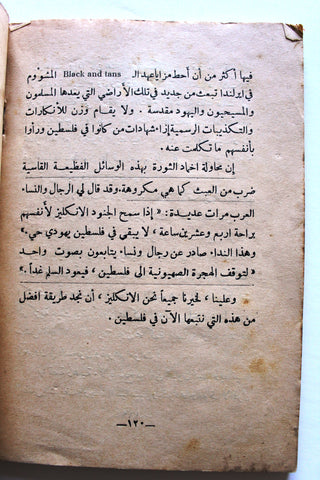 فيها أكثر من أن أحط مزايا عهد الـ Black and tans المشؤوم
في ايرلندا تبعث من جديد في تلك الأراضي التي يعدها المسلمون
والمسيحيون واليهود مقدسة . ولا يقام وزن للأنكارات
والتكذيبات الرسمية إزاء شهادات من كانوا في فلسطين ورأوا
بأنفسهم ما تكلمت عنه .
إن محاولة اخماد الثورة بهذه الوسائل الفظيعة القاسية
ضرب من العبث كما هي مكروهة . وقد قال لي الرجال والنساء
العرب مرات عديدة : « إذا سمح الجنود الانكليز لأنفسهم
براحة اربع وعشرين ساعة ، لا يبقى في فلسطين يهودي حي »
وهذا النداء صادر عن رجال ونساء يتابعون بصوت واحد
« لتوقف الهجرة الصهيونية الى فلسطين ، فيعود السلم غداً . »
وعلينا ، فخيرنا جميعاً نحن الانكليز ، أن نجد طريقة افضل
من هذه التي نتبعها الآن في فلسطين .
— ١٢٠ —